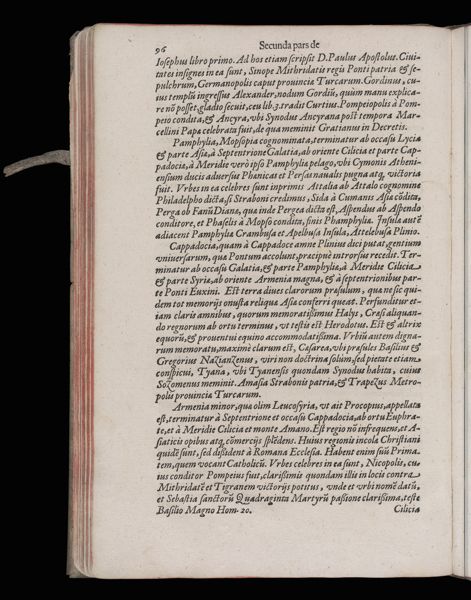 96 Secunda pars de
Iosephus libro primo. Ad hos etiam scripsit D. Paulus Apostolus. Ciui-
tates insignes in ea sunt, Sinope Mithridatis regis Ponti patria & se-
pulchrum, Germanopolis caput prouinciæ Turcarum. Gordinus, cu-
ius templũ ingressus Alexander, nodum Gordiũ, quùm manu explica-
re nõ posset, gladio secuit, ceu lib. 3. tradit Curtius. Pompeiopolis à Pom-
peio condita, & Ancyra, vbi Synodus Ancyrana post tempora Mar-
cellini Papæ celebrata fuit, de qua meminit Gratianus in Decretis.
Pamphylia, Mopsopia cognominata, terminatur ab occasu Lycia
& parte Asiæ, à Septentrione Galatia, ab oriente Cilicia et parte Cap-
padociæ, à Meridie verò ipso Pamphylio pelago, vbi Cymonis Atheni-
ensium ducis aduersus Phœnicas et Persas naualis pugna atq; victoria
fuit. Vrbes in ea celebres sunt inprimis Attalia ab Attalo cognomine
Philadelpho dicta, si Straboni credimus, Sida à Cumanis Asiæ cõdita,
Perga ob Fanũ Dianæ, quæ inde Pergea dicta est, Aspendus ab Aspendo
conditore, et Phaselis à Mopso condita, finis Pamphyliæ. Insulæ autẽ
adiacent Pamphyliæ Crambusa et Apelbusa Insula, Attelebusa Plinio.
Cappadocia, quam à Cappadoce amne Plinius dici putat, gentium
vniuersarum, quæ Pontum accolunt, præcipuè introrsus recedit. Ter-
minatur ab occasu Galatia, & parte Pamphyliæ, à Meridie Cilicia
& parte Syriæ, ab oriente Armenia magna, & à septentrionibus par-
te Ponti Euxini. Est terra diues clarorum præsulum, quæ nescio qui-
dem tot memorijs onusta reliquæ Asiæ conferri queat. Perfunditur et-
iam claris amnibus, quorum memoratissimus Halys, Crœsi aliquan-
do regnorum ab ortu terminus, vt testis est Herodotus. Est & altrix
equorũ, & prouentui equino accommodatissima. Vrbiũ autem digna-
rum memoratu, maximè clarum est, Cæsarea, vbi præsules Basilius &
Gregorius Nazianzenus, viri non doctrina solùm, sed pietate etiam
conspicui, Tyana, vbi Tyanensis quondam Synodus habita, cuius
Sozomenus meminit. Amasia Strabonis patria, & Trapezus Metro-
polis prouinciæ Turcarum.
Armenia minor, quæ olim Leucosyria, vt ait Procopius, appellata
est, terminatur à Septentrione et occasu Cappadocia, ab ortu Euphra-
te, et à Meridie Cilicia et monte Amano. Est regio nõ infrequens, et A-
siaticis opibus atq; cõmercijs splẽdens. Huius regionis incolæ Christiani
quidẽ sunt, sed dissident à Romana Ecclesia. Habent enim suũ Prima-
tem, quem vocant Catholicũ. Vrbes celebres in ea sunt, Nicopolis, cu-
ius conditor Pompeius fuit, clarissimis quondam illis in locis contra
Mithridatẽ et Tigranem victorijs potitus, vnde et vrbi nomẽ datũ,
et Sebastia sanctorũ Quadraginta Martyrũ passione clarissima, teste
Basilio Magno Hom. 20.
Cilicia